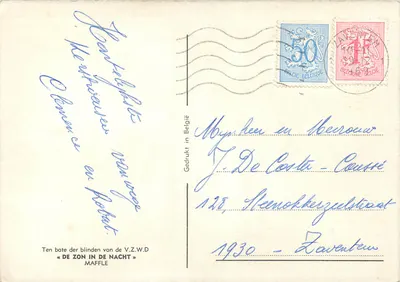 Hartelijkste
Kerstwensen vanwege
Clemence en Robert.
Ten bate der blinden van de V.Z.W.D
« DE ZON IN DE NACHT »
MAFFLE
Gedrukt in België
50
1F
ZAVENTEM
Mijnheer en Mevrouw
J De Coster - Coussé
128, Steenokkerzeelstraat
1930 - Zaventem